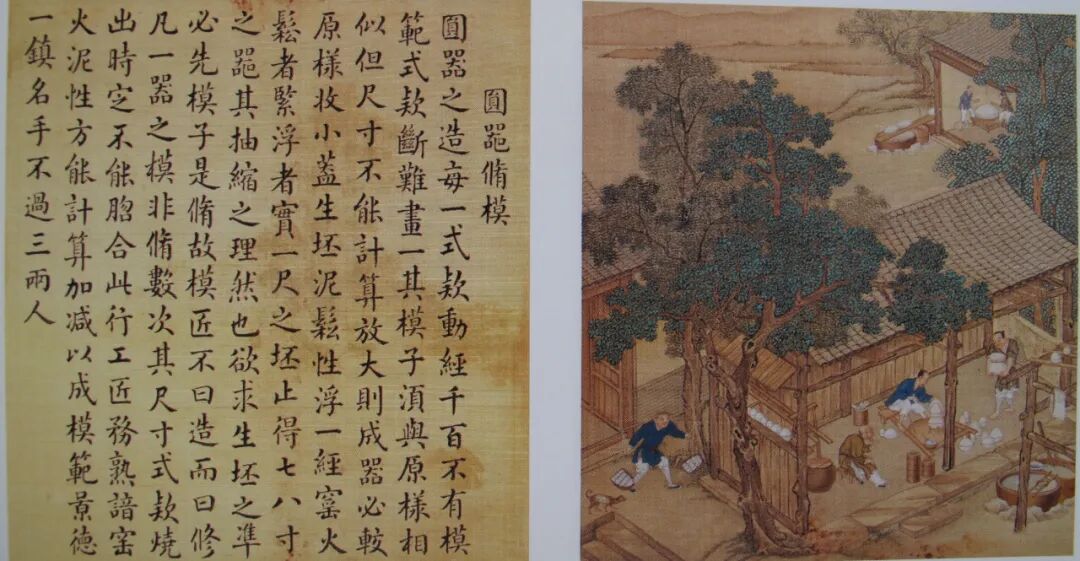 圓器脩模
圓器之造每一式款動經千百不有模
範式款斷難畫一其模子須與原樣相
似但尺寸不能計算放大則成器必較
原樣收小蓋生坯泥鬆性浮一經窰火
鬆者緊浮者實一尺之坯止得七八寸
之器其抽縮之理然也欲求生坯之準
必先模子是脩故模匠不曰造而曰修
凡一器之模非脩數次其尺寸式款燒
出時定不能脗合此行工匠務熟諳窑
火泥性方能計算加減以成模範景德
一鎮名手不過三兩人